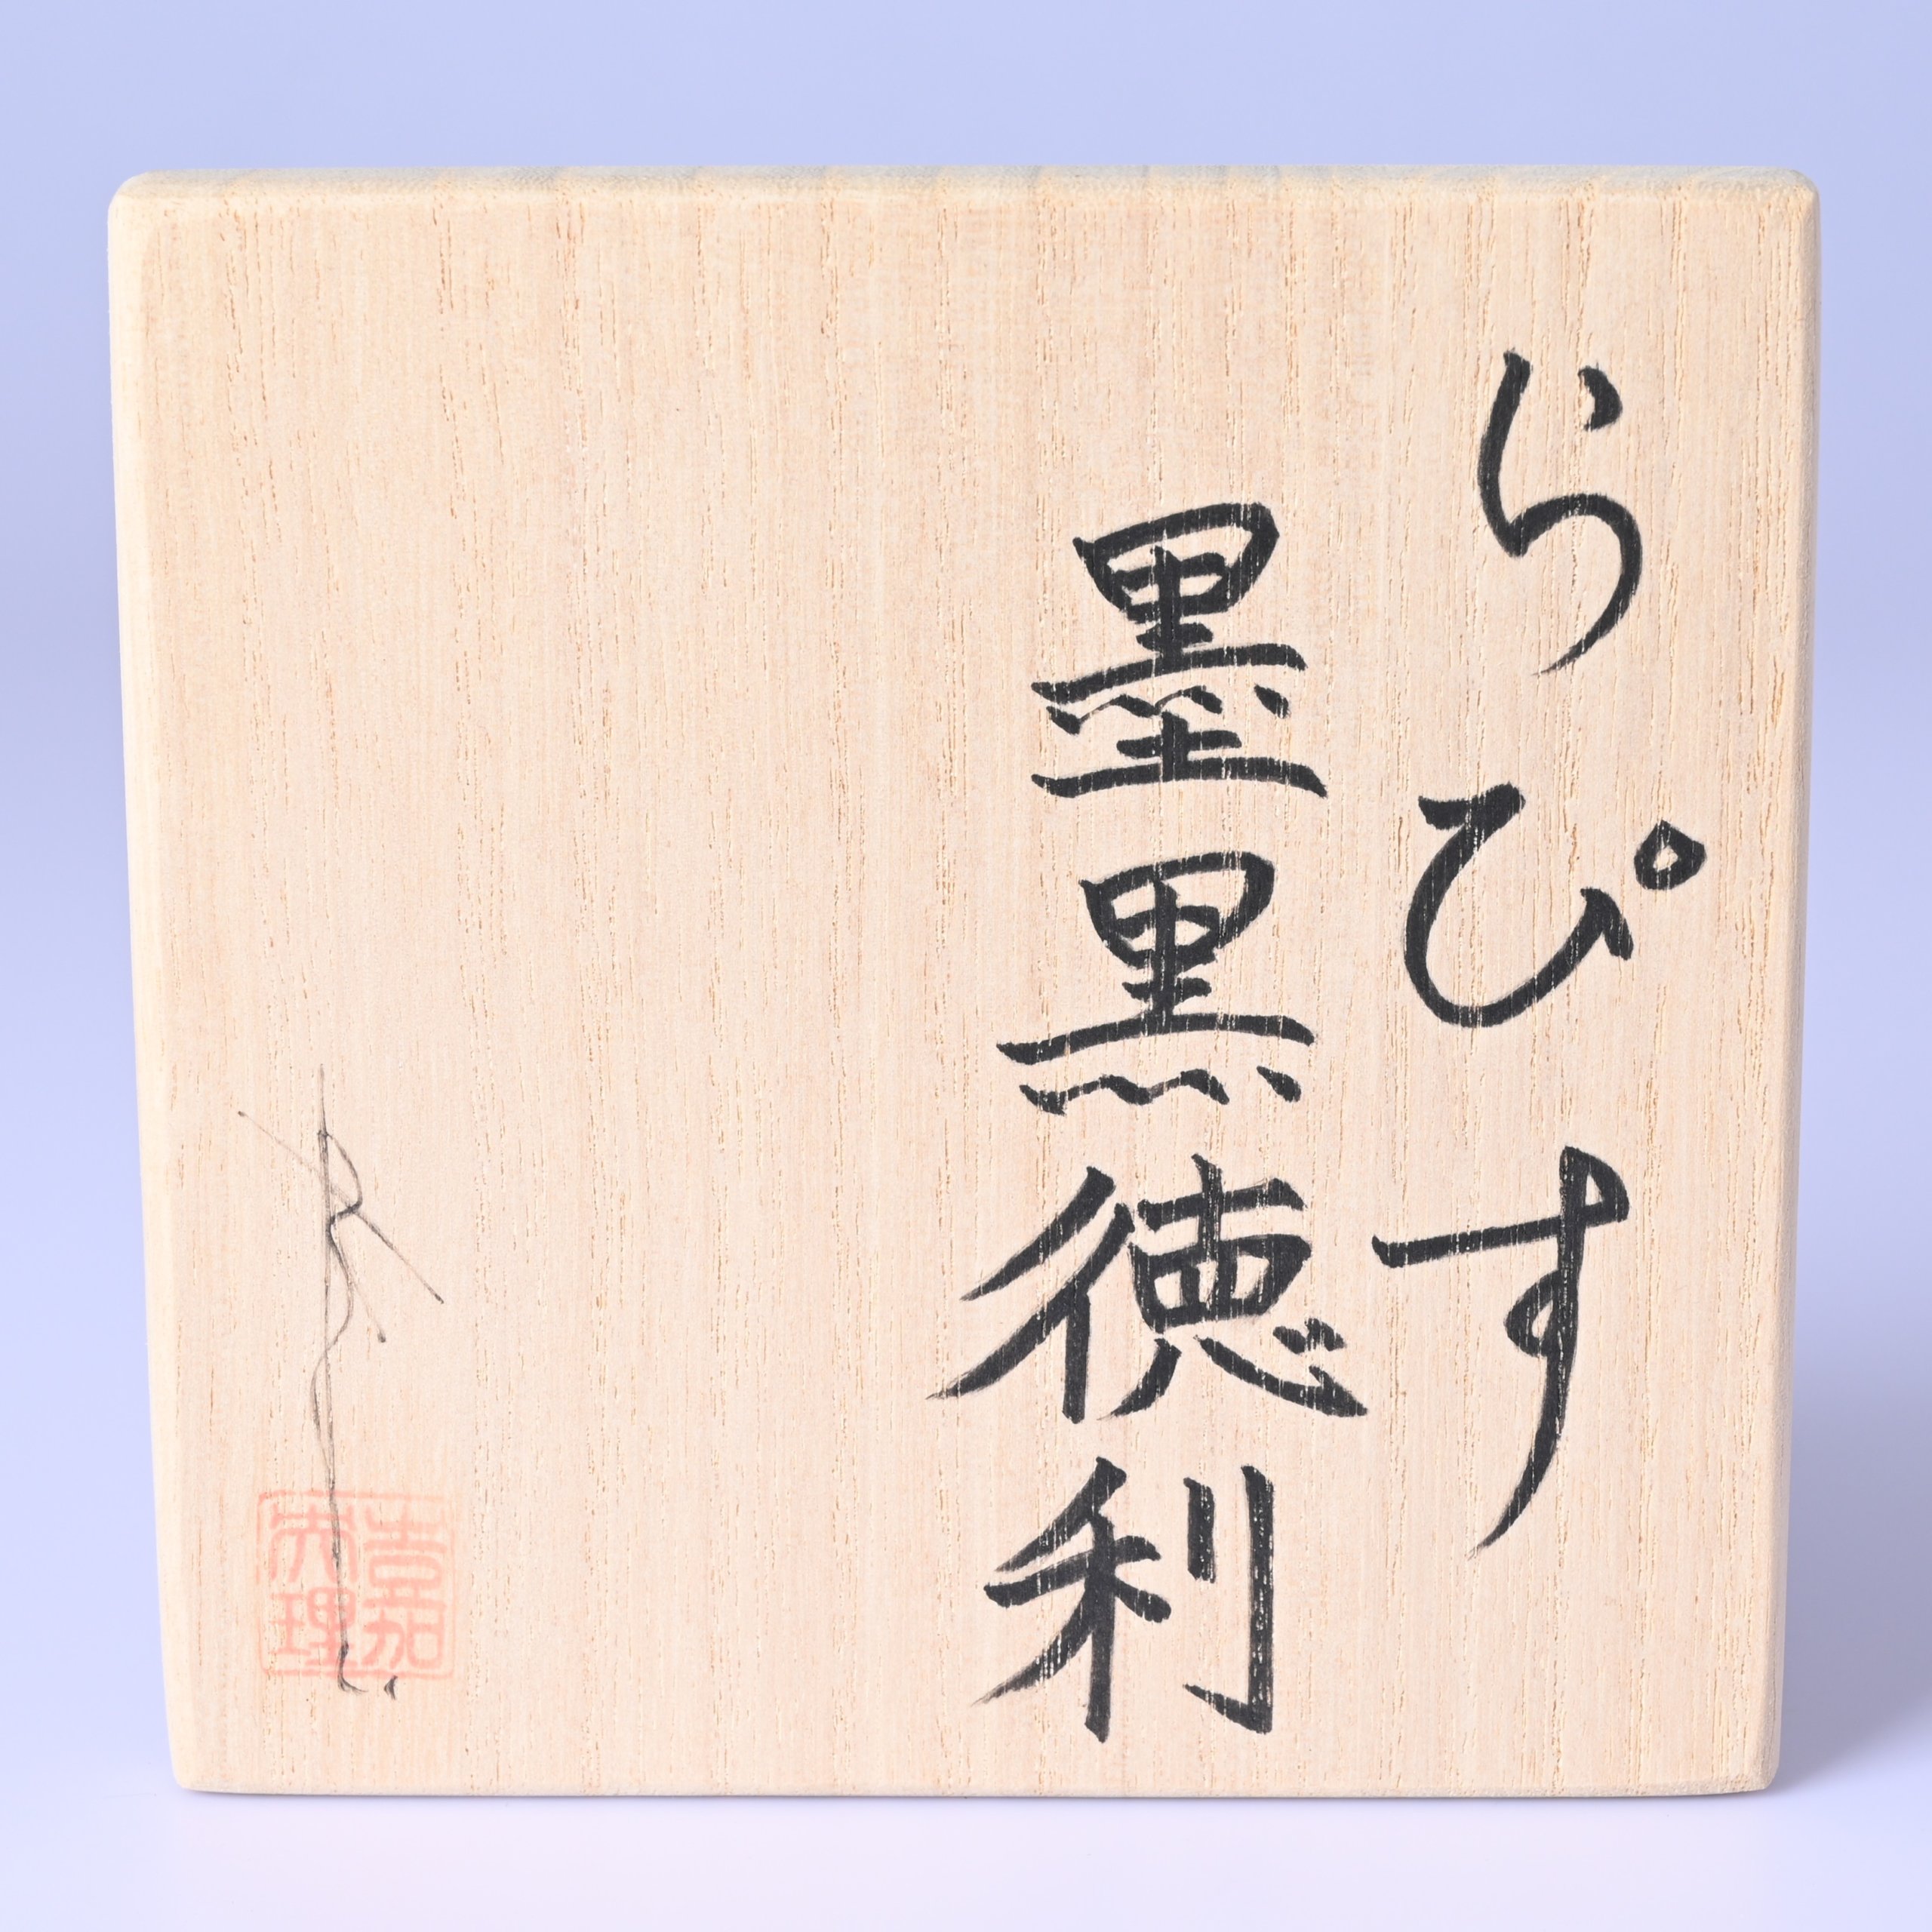 らぴす
墨黒徳利
吉加
央理